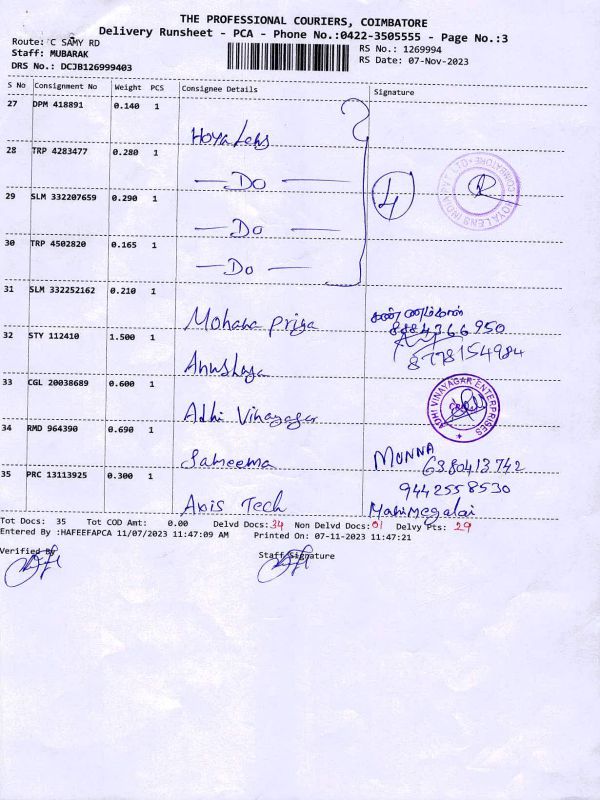 THE PROFESSIONAL COURIERS, COIMBATORE
Delivery Runsheet - PCA - Phone No.:0422-3505555 - Page No.:3
Route: C SAMY RD
RS No.: 1269994
Staff: MUBARAK
RS Date: 07-Nov-2023
DRS No.: DCJB126999403
S No Consignment No Weight PCS Consignee Details Signature
27 DPM 418891 0.140 1
Hoya Lens
28 TRP 4283477 0.280 1
— Do —
4
29 SLM 332207659 0.290 1
— Do —
30 TRP 4502820 0.165 1
— Do —
31 SLM 332252162 0.210 1
Mohana Priya
8884366950
32 STY 112410 1.500 1
8778154984
33 CGL 20038689 0.600 1
ADHI VINAYAGAR ENTERPRISES
Adhi Vinayagar
34 RMD 964390 0.690 1
Saheema
MUNNA
6380413742
35 PRC 13113925 0.300 1
9442558530
Axis Tech
Manimegalai
Tot Docs: 35 Tot COD Amt: 0.00 Delvd Docs:34 Non Delvd Docs:01 Delvy Pts: 29
Entered By :HAFEEFAPCA 11/07/2023 11:47:09 AM Printed On: 07-11-2023 11:47:21
Verified By
Staff Signature